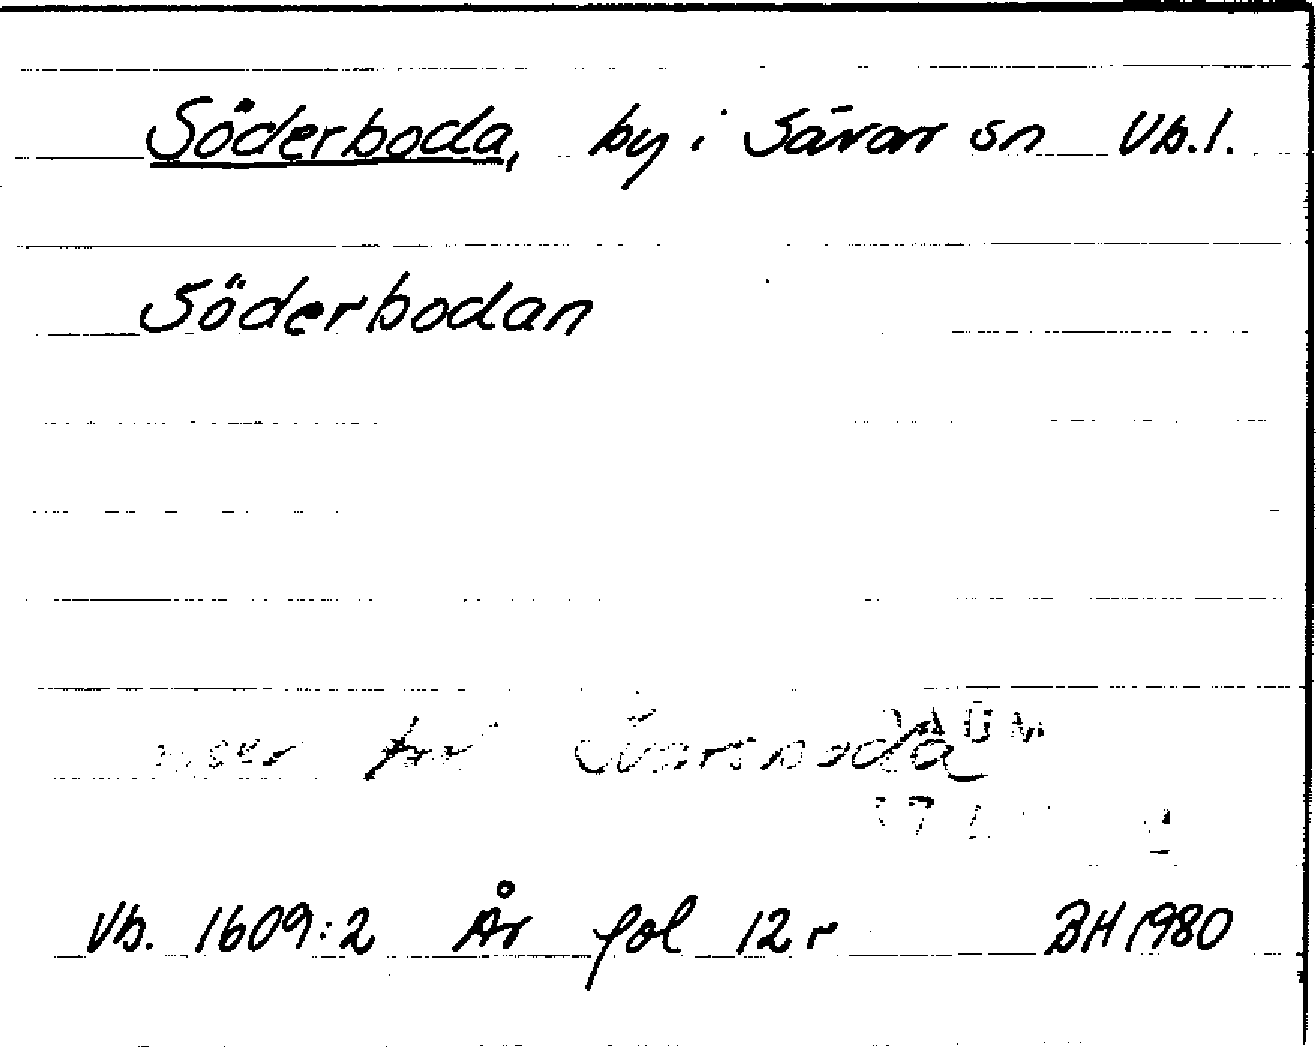 Söderboda, by i Sävar sn Vb.l.
Söderbodan
Vb. 1609:2 År fol 12 r BH 1980